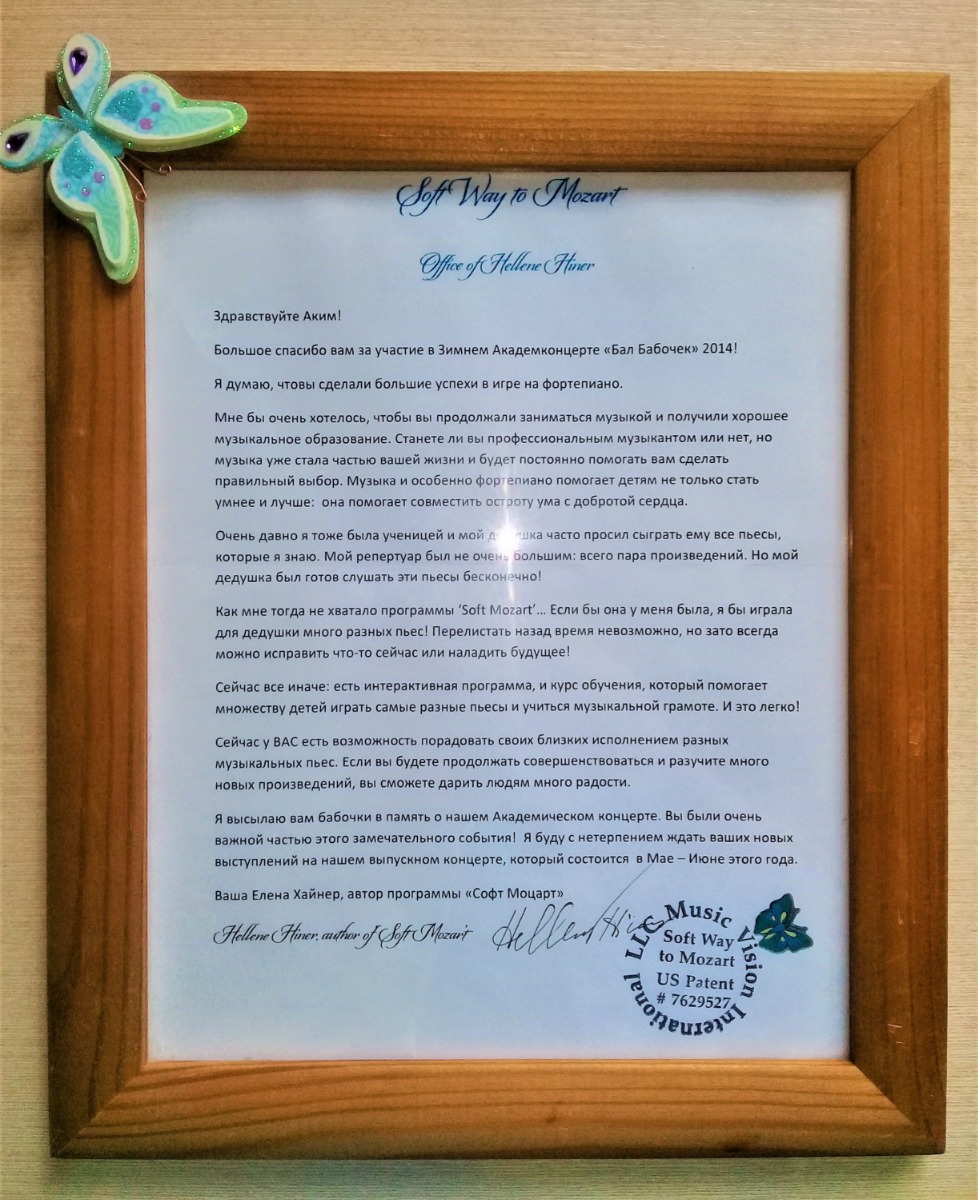 Soft Way to Mozart
Office of Hellene Hiner
Здравствуйте Аким!
Большое спасибо вам за участие в Зимнем Академконцерте «Бал Бабочек» 2014!
Я думаю, чтовы сделали большие успехи в игре на фортепиано.
Мне бы очень хотелось, чтобы вы продолжали заниматься музыкой и получили хорошее
музыкальное образование. Станете ли вы профессиональным музыкантом или нет, но
музыка уже стала частью вашей жизни и будет постоянно помогать вам сделать
правильный выбор. Музыка и особенно фортепиано помогает детям не только стать
умнее и лучше: она помогает совместить остроту ума с добротой сердца.
Очень давно я тоже была ученицей и мой дедушка часто просил сыграть ему все пьесы,
которые я знаю. Мой репертуар был не очень большим: всего пара произведений. Но мой
дедушка был готов слушать эти пьесы бесконечно!
Как мне тогда не хватало программы ‘Soft Mozart’... Если бы она у меня была, я бы играла
для дедушки много разных пьес! Перелистать назад время невозможно, но зато всегда
можно исправить что-то сейчас или наладить будущее!
Сейчас все иначе: есть интерактивная программа, и курс обучения, который помогает
множеству детей играть самые разные пьесы и учиться музыкальной грамоте. И это легко!
Сейчас у ВАС есть возможность порадовать своих близких исполнением разных
музыкальных пьес. Если вы будете продолжать совершенствоваться и разучите много
новых произведений, вы сможете дарить людям много радости.
Я высылаю вам бабочки в память о нашем Академическом концерте. Вы были очень
важной частью этого замечательного события! Я буду с нетерпением ждать ваших новых
выступлений на нашем выпускном концерте, который состоится в Мае – Июне этого года.
Ваша Елена Хайнер, автор программы «Софт Моцарт»
Hellene Hiner, author of Soft Mozart
Hellene Hiner
Music Vision International LLC
Soft Way
to Mozart
US Patent
# 7629527